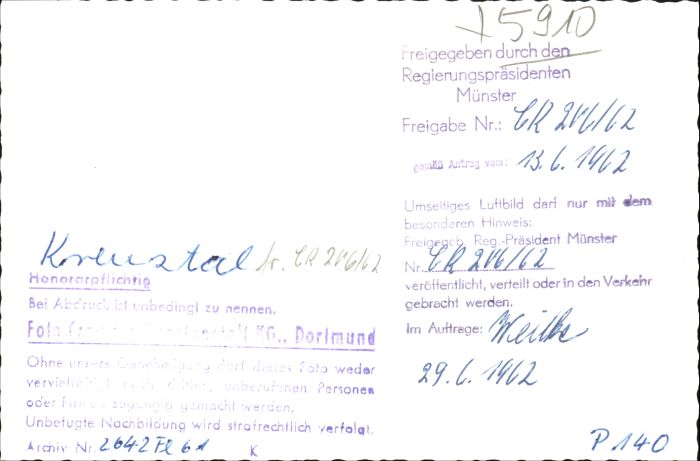 +5910
Freigegeben durch den
Regierungspräsidenten
Münster
Freigabe Nr.: CR 206/62
gemäß Antrag vom: 13.6.1962
Umseitiges Luftbild darf nur mit dem
besonderen Hinweis:
Freigegeb. Reg.-Präsident Münster
Nr. CR 206/62
veröffentlicht, verteilt oder in den Verkehr
gebracht werden.
Im Auftrage:
29.6.1962
fr. CR 206/62
Honorarpflichtig
Bei Abdruck ist unbedingt zu nennen.
Foto KG., Dortmund
Ohne unsere Genehmigung darf dieses Foto weder
vervielfältigt noch dritten, unberufenen Personen
oder Firmen zugängig gemacht werden.
Unbefugte Nachbildung wird strafrechtlich verfolgt.
Archiv Nr. 2642 Fl 61 K
P 140